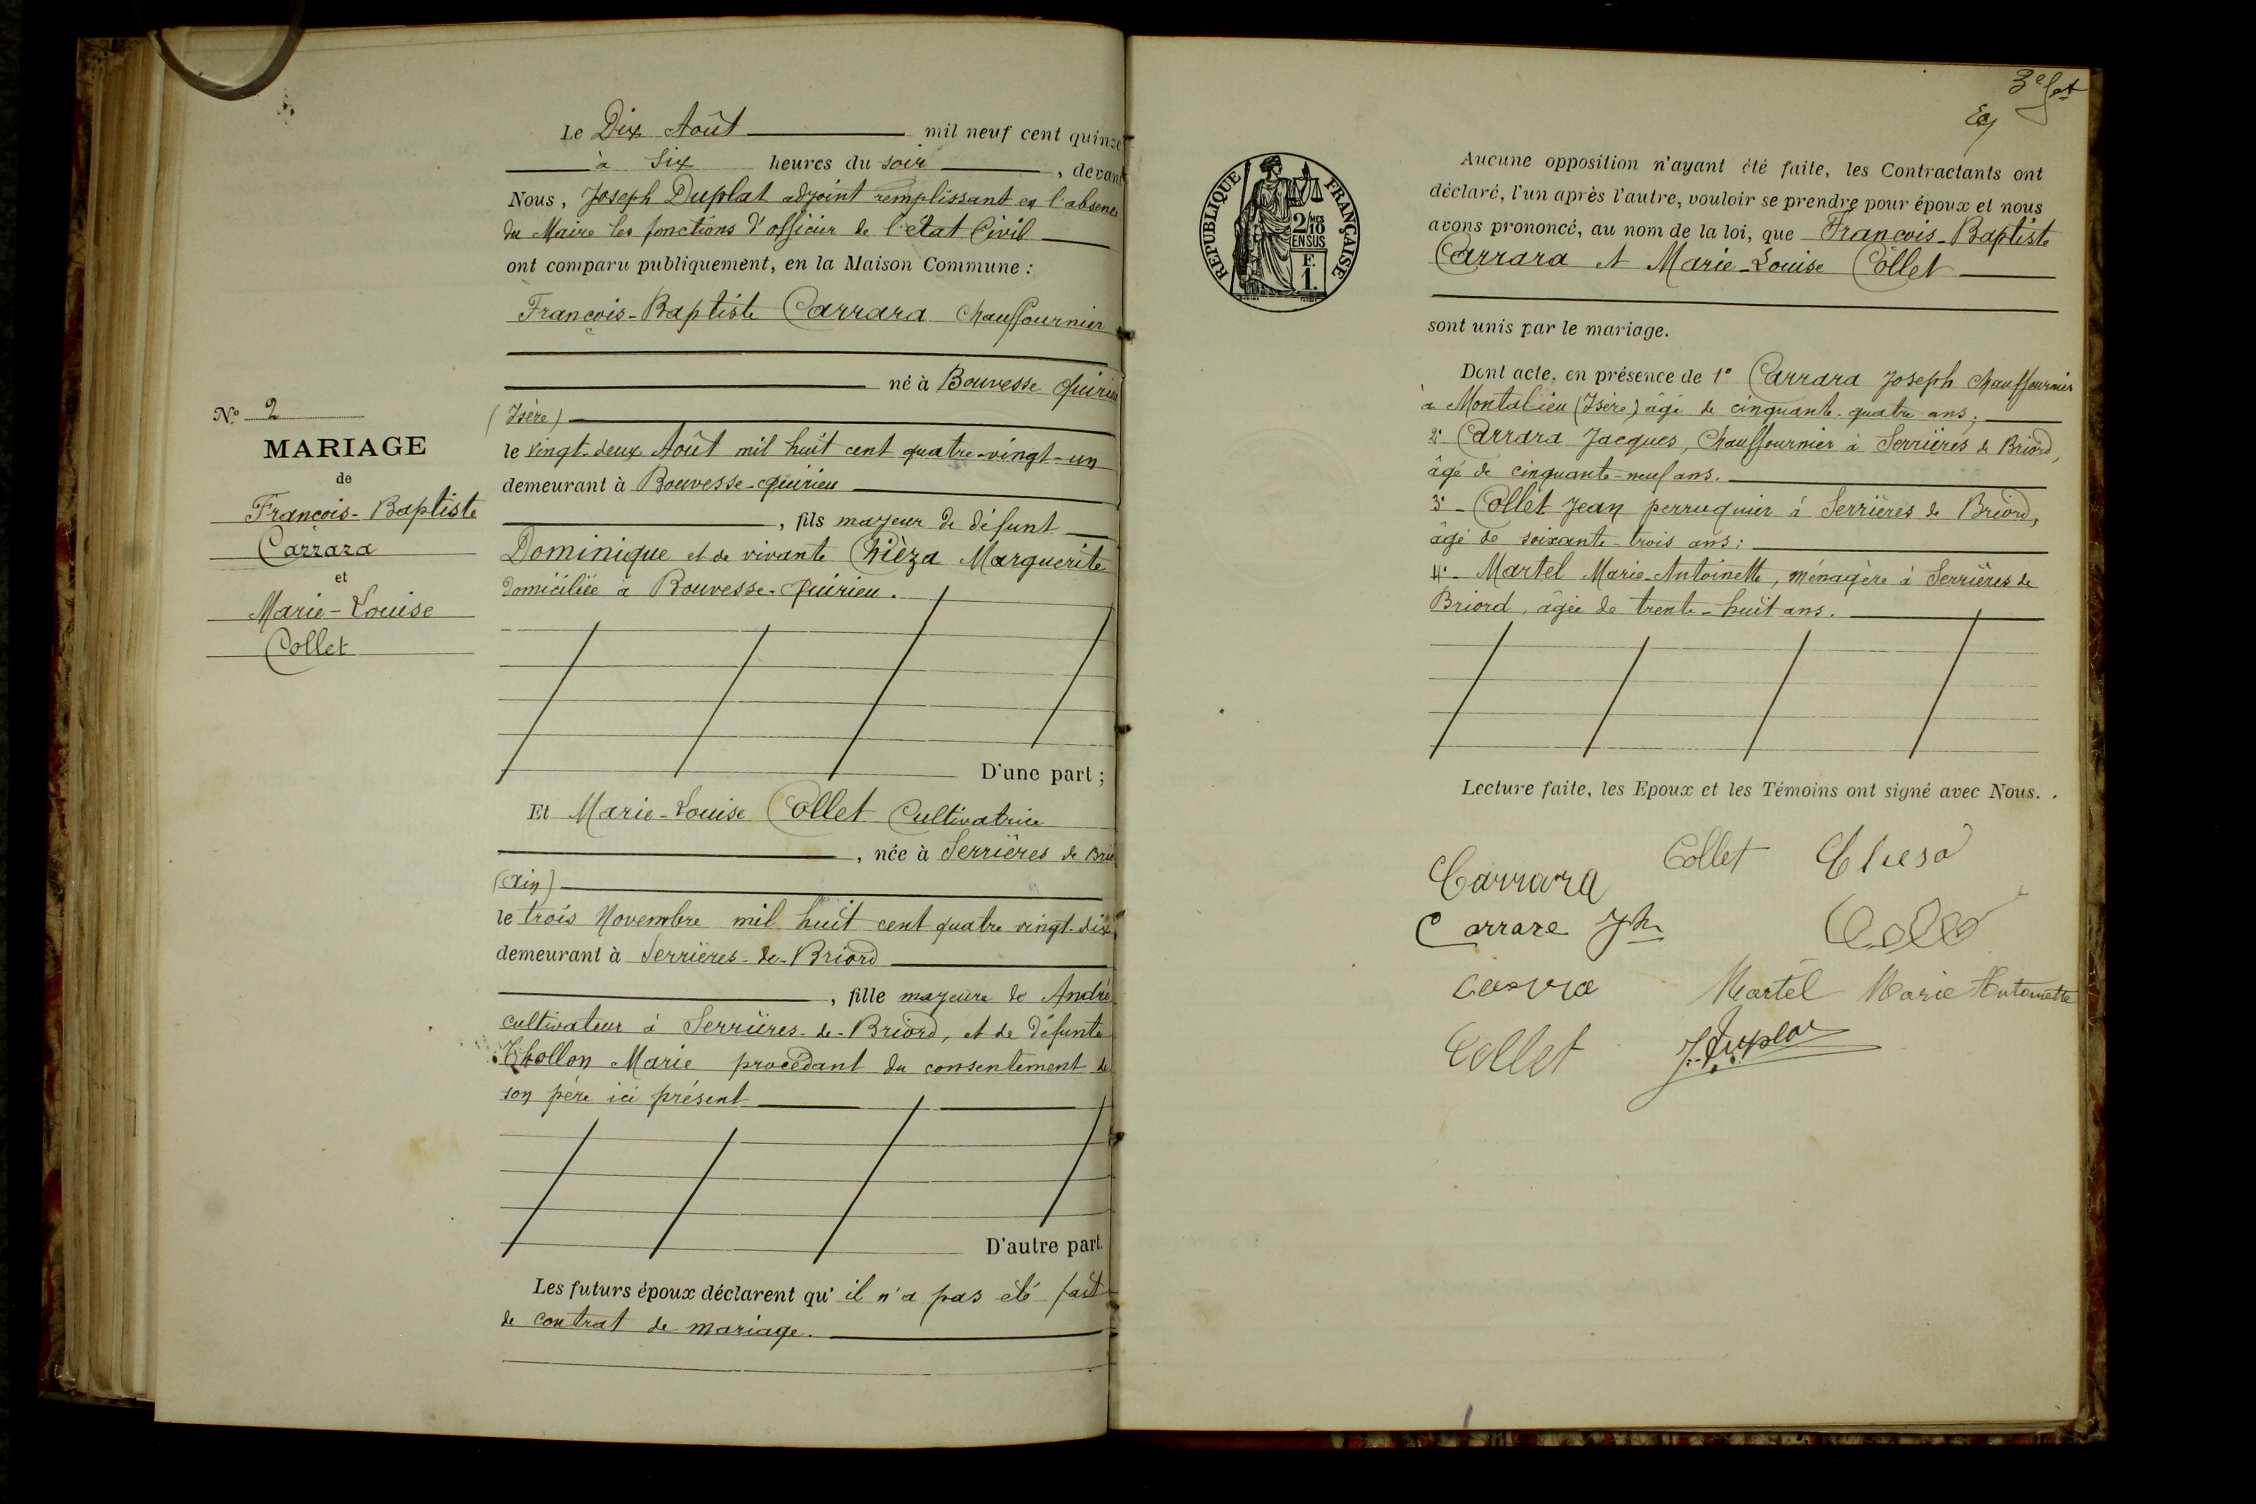 Le Dix Août mil neuf cent quinze
à Six heures du soir, devant
Nous, Joseph Duplat adjoint remplissant en l'absence
du Maire les fonctions d'officier de l'état Civil
ont comparu publiquement, en la Maison Commune :
François-Baptiste Carrara Chauffournier
né à Bouvesse Quirieu
(Isère)
le vingt-deux Août mil huit cent quatre-vingt-un
demeurant à Bouvesse-Quirieu
, fils majeur de défunt
Dominique et de vivante Chièza Marguerite
domiciliée à Bouvesse-Quirieu.
D'une part ;
N° 2
MARIAGE
de
François-Baptiste
Carrara
et
Marie-Louise
Collet
Et Marie-Louise Collet Cultivatrice
, née à Serrières de Brio
(Ain)
le trois Novembre mil huit cent quatre vingt-dix
demeurant à Serrières-de-Briord
, fille majeure de André
cultivateur à Serrières-de-Briord, et de défunte
Thollon Marie procédant du consentement de
son père ici présent
D'autre part.
Les futurs époux déclarent qu'il n'a pas été fait
de contrat de mariage.
3e f et
RÉPUBLIQUE FRANÇAISE
2/10 MES
EN SUS
F.
1.
Aucune opposition n'ayant été faite, les Contractants ont
déclaré, l'un après l'autre, vouloir se prendre pour époux et nous
avons prononcé, au nom de la loi, que François-Baptiste
Carrara et Marie-Louise Collet
sont unis par le mariage.
Dont acte, en présence de 1° Carrara Joseph Chauffournier
à Montalieu (Isère) âgé de cinquante-quatre ans;
2° Carrara Jacques, Chauffournier à Serrières de Briord,
âgé de cinquante-neuf ans.
3°- Collet Jean perruquier à Serrières de Briord,
âgé de soixante-trois ans;
4°- Martel Marie-Antoinette, ménagère à Serrières de
Briord, âgée de trente-huit ans.
Lecture faite, les Epoux et les Témoins ont signé avec Nous.
Carrara Collet Chiesa
Carrare Jh
Martel Marie Antoinette
Collet J. Duplat